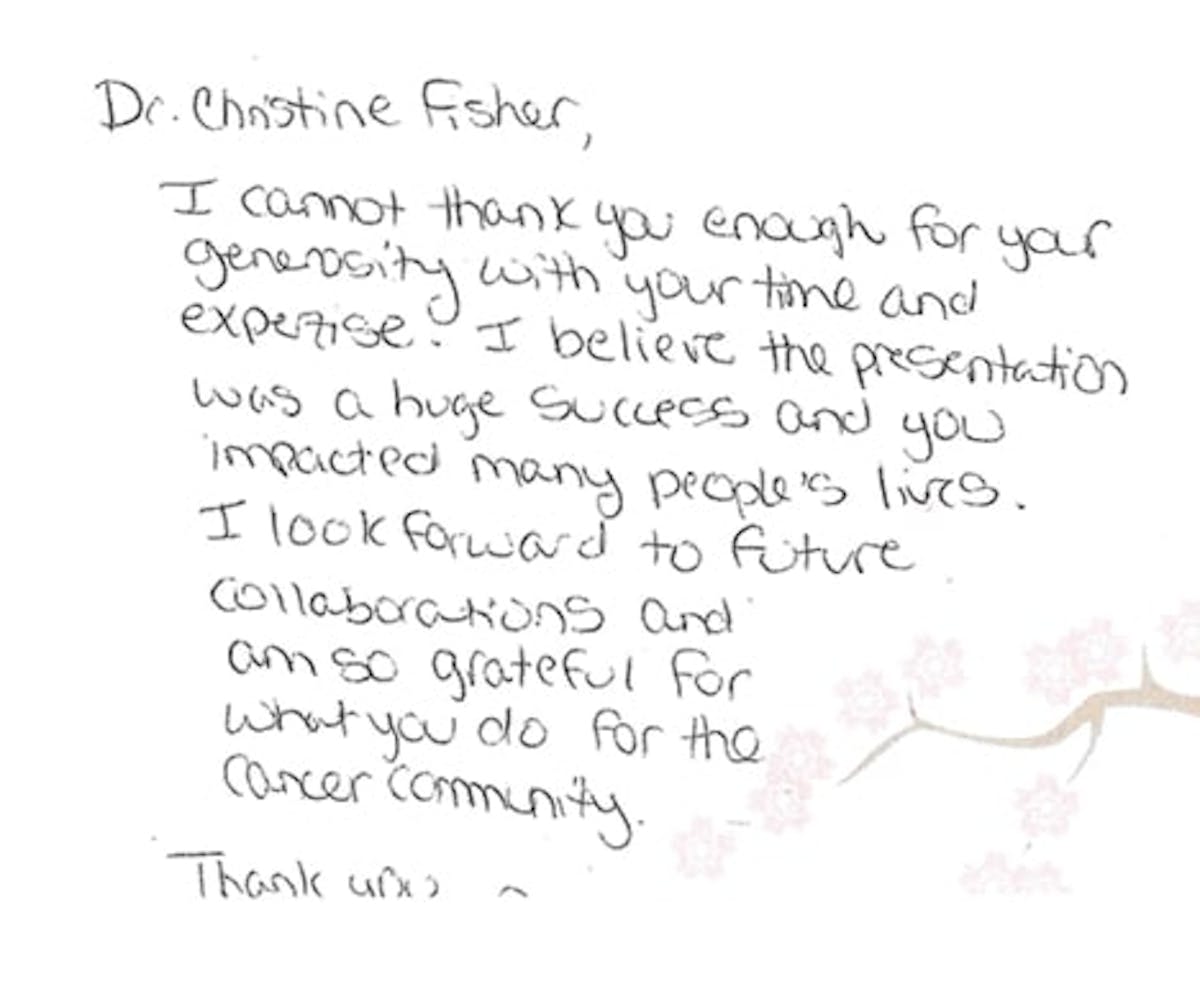 Dr. Christine Fisher,
I cannot thank you enough for your
generosity with your time and
expertise. I believe the presentation
was a huge success and you
impacted many people's lives.
I look forward to future
collaborations and
am so grateful for
what you do for the
cancer community.
Thank